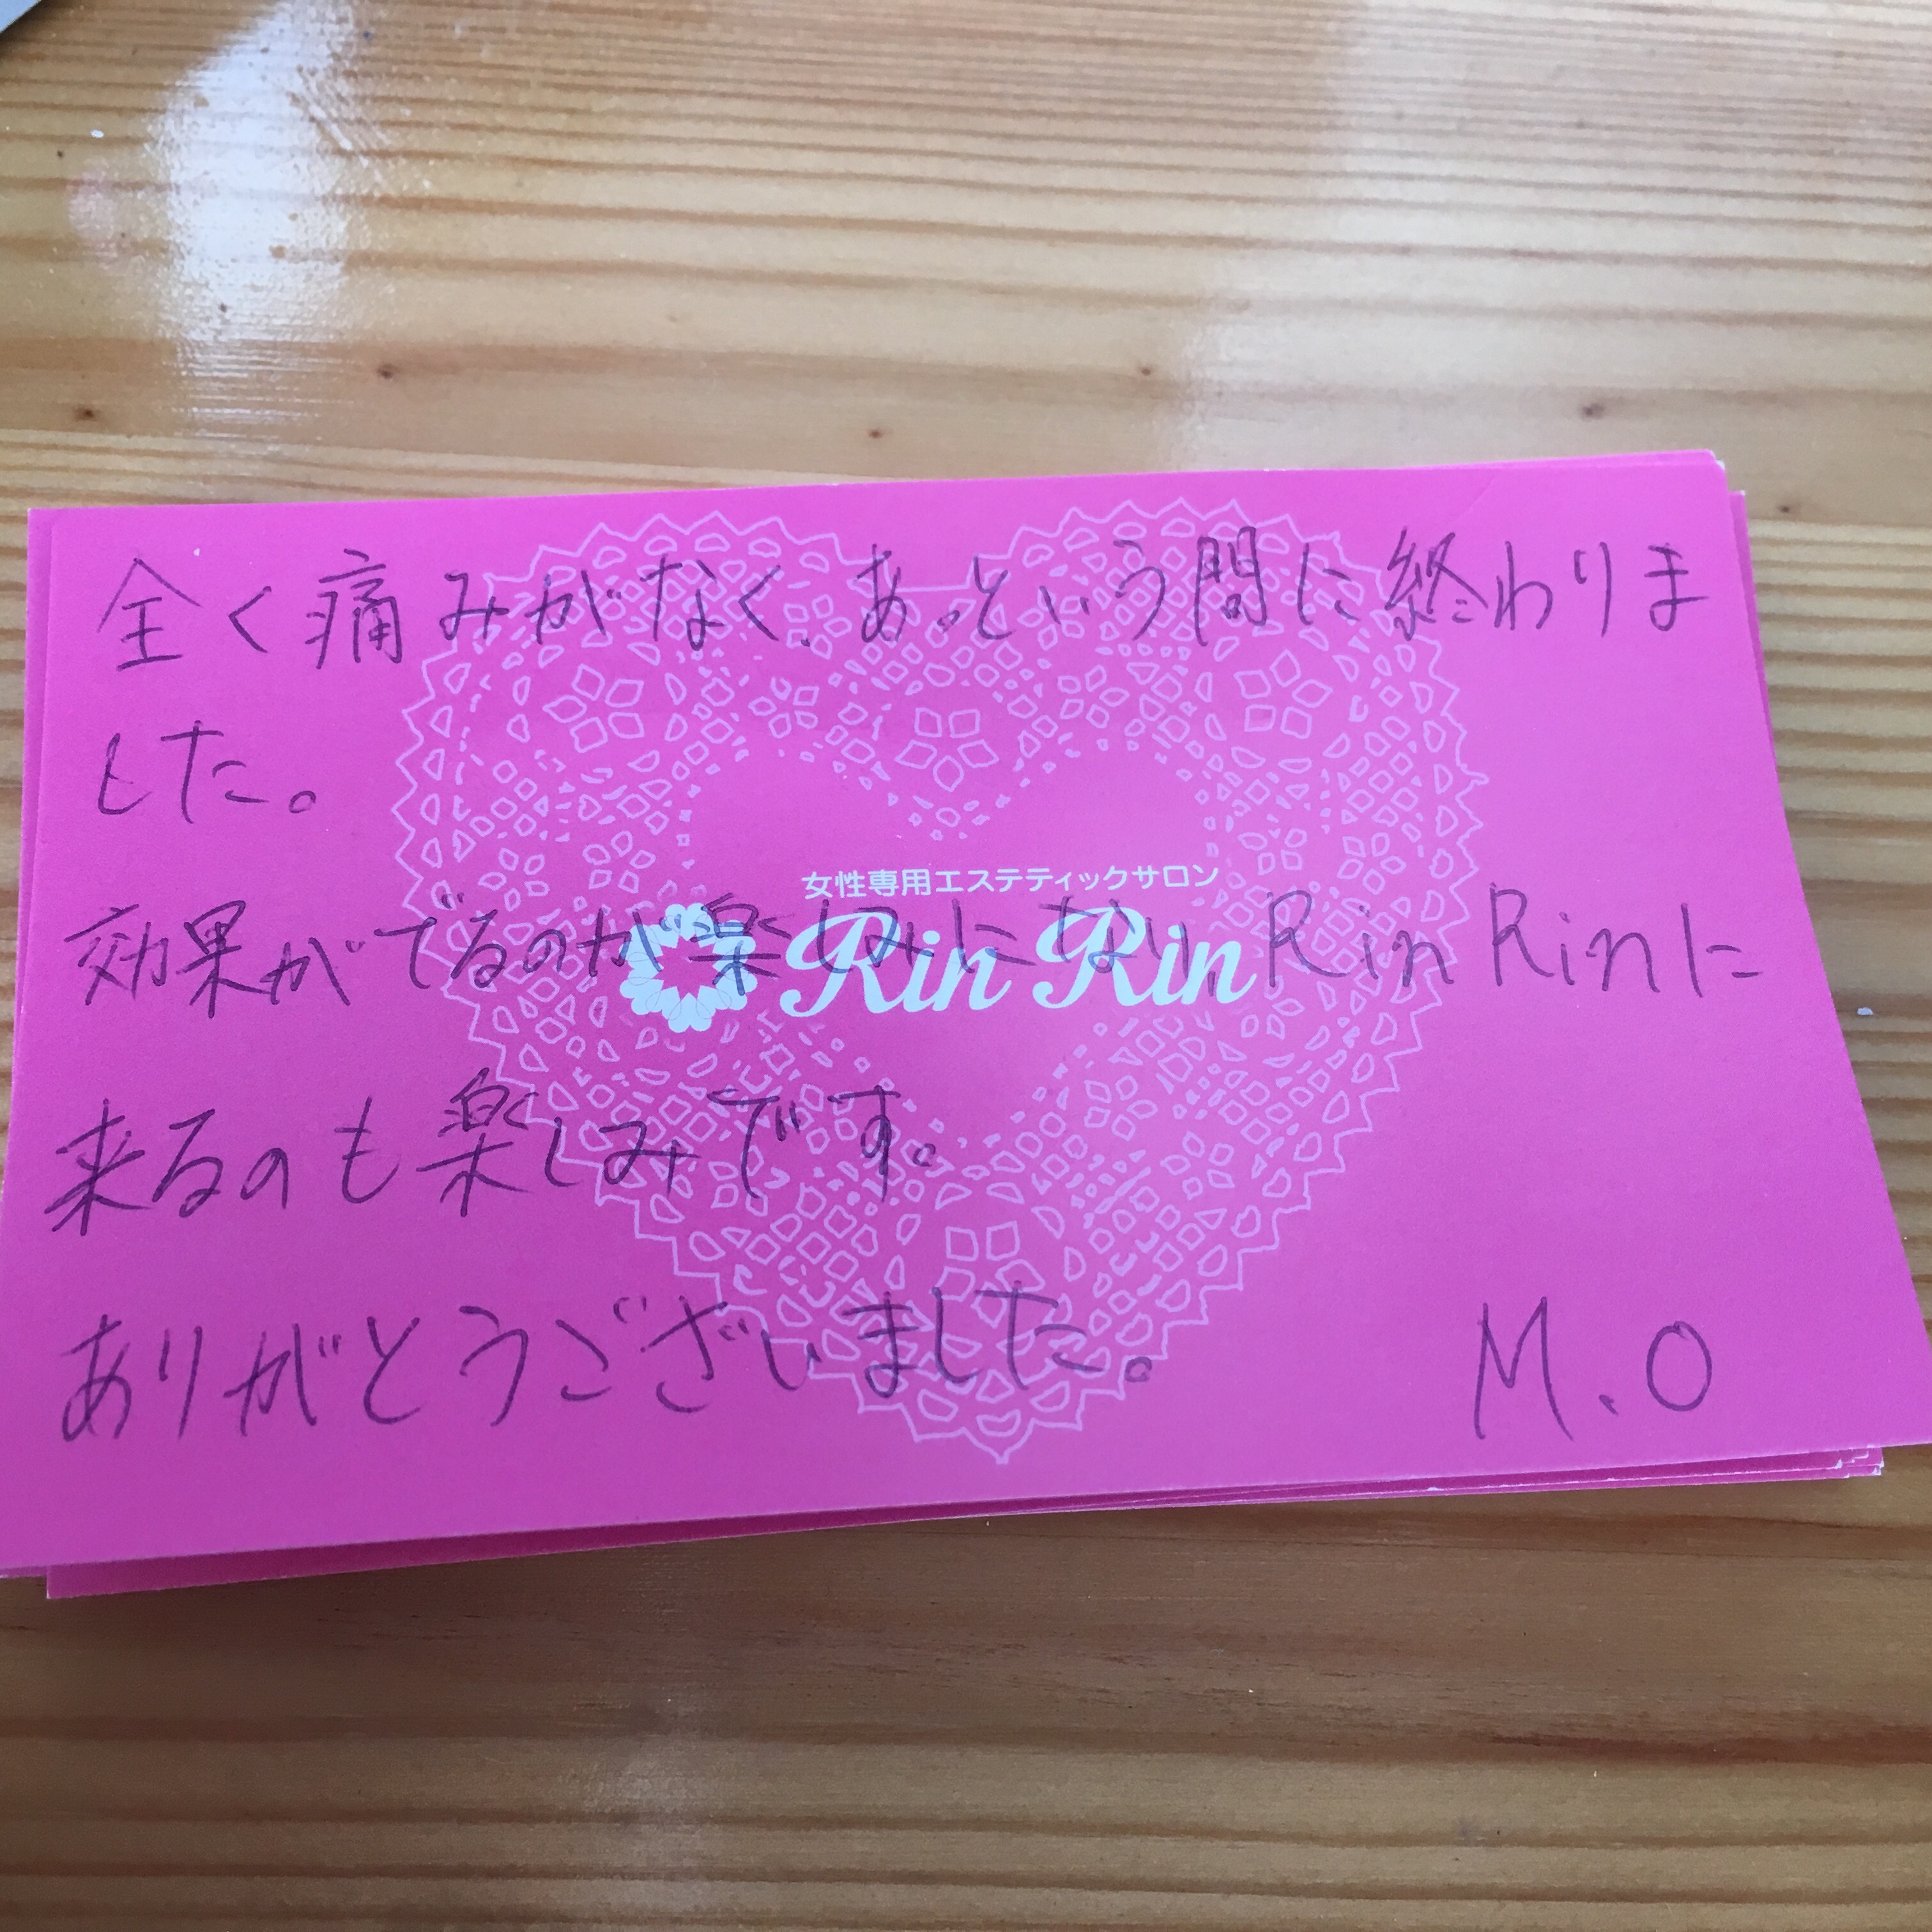 全く痛みがなく、あっという間に終わりま
した。
女性専用エステティックサロン
Rin Rin
効果がでるのが楽しみになり、Rin Rinに
来るのも楽しみです。
ありがとうございました。
M.O